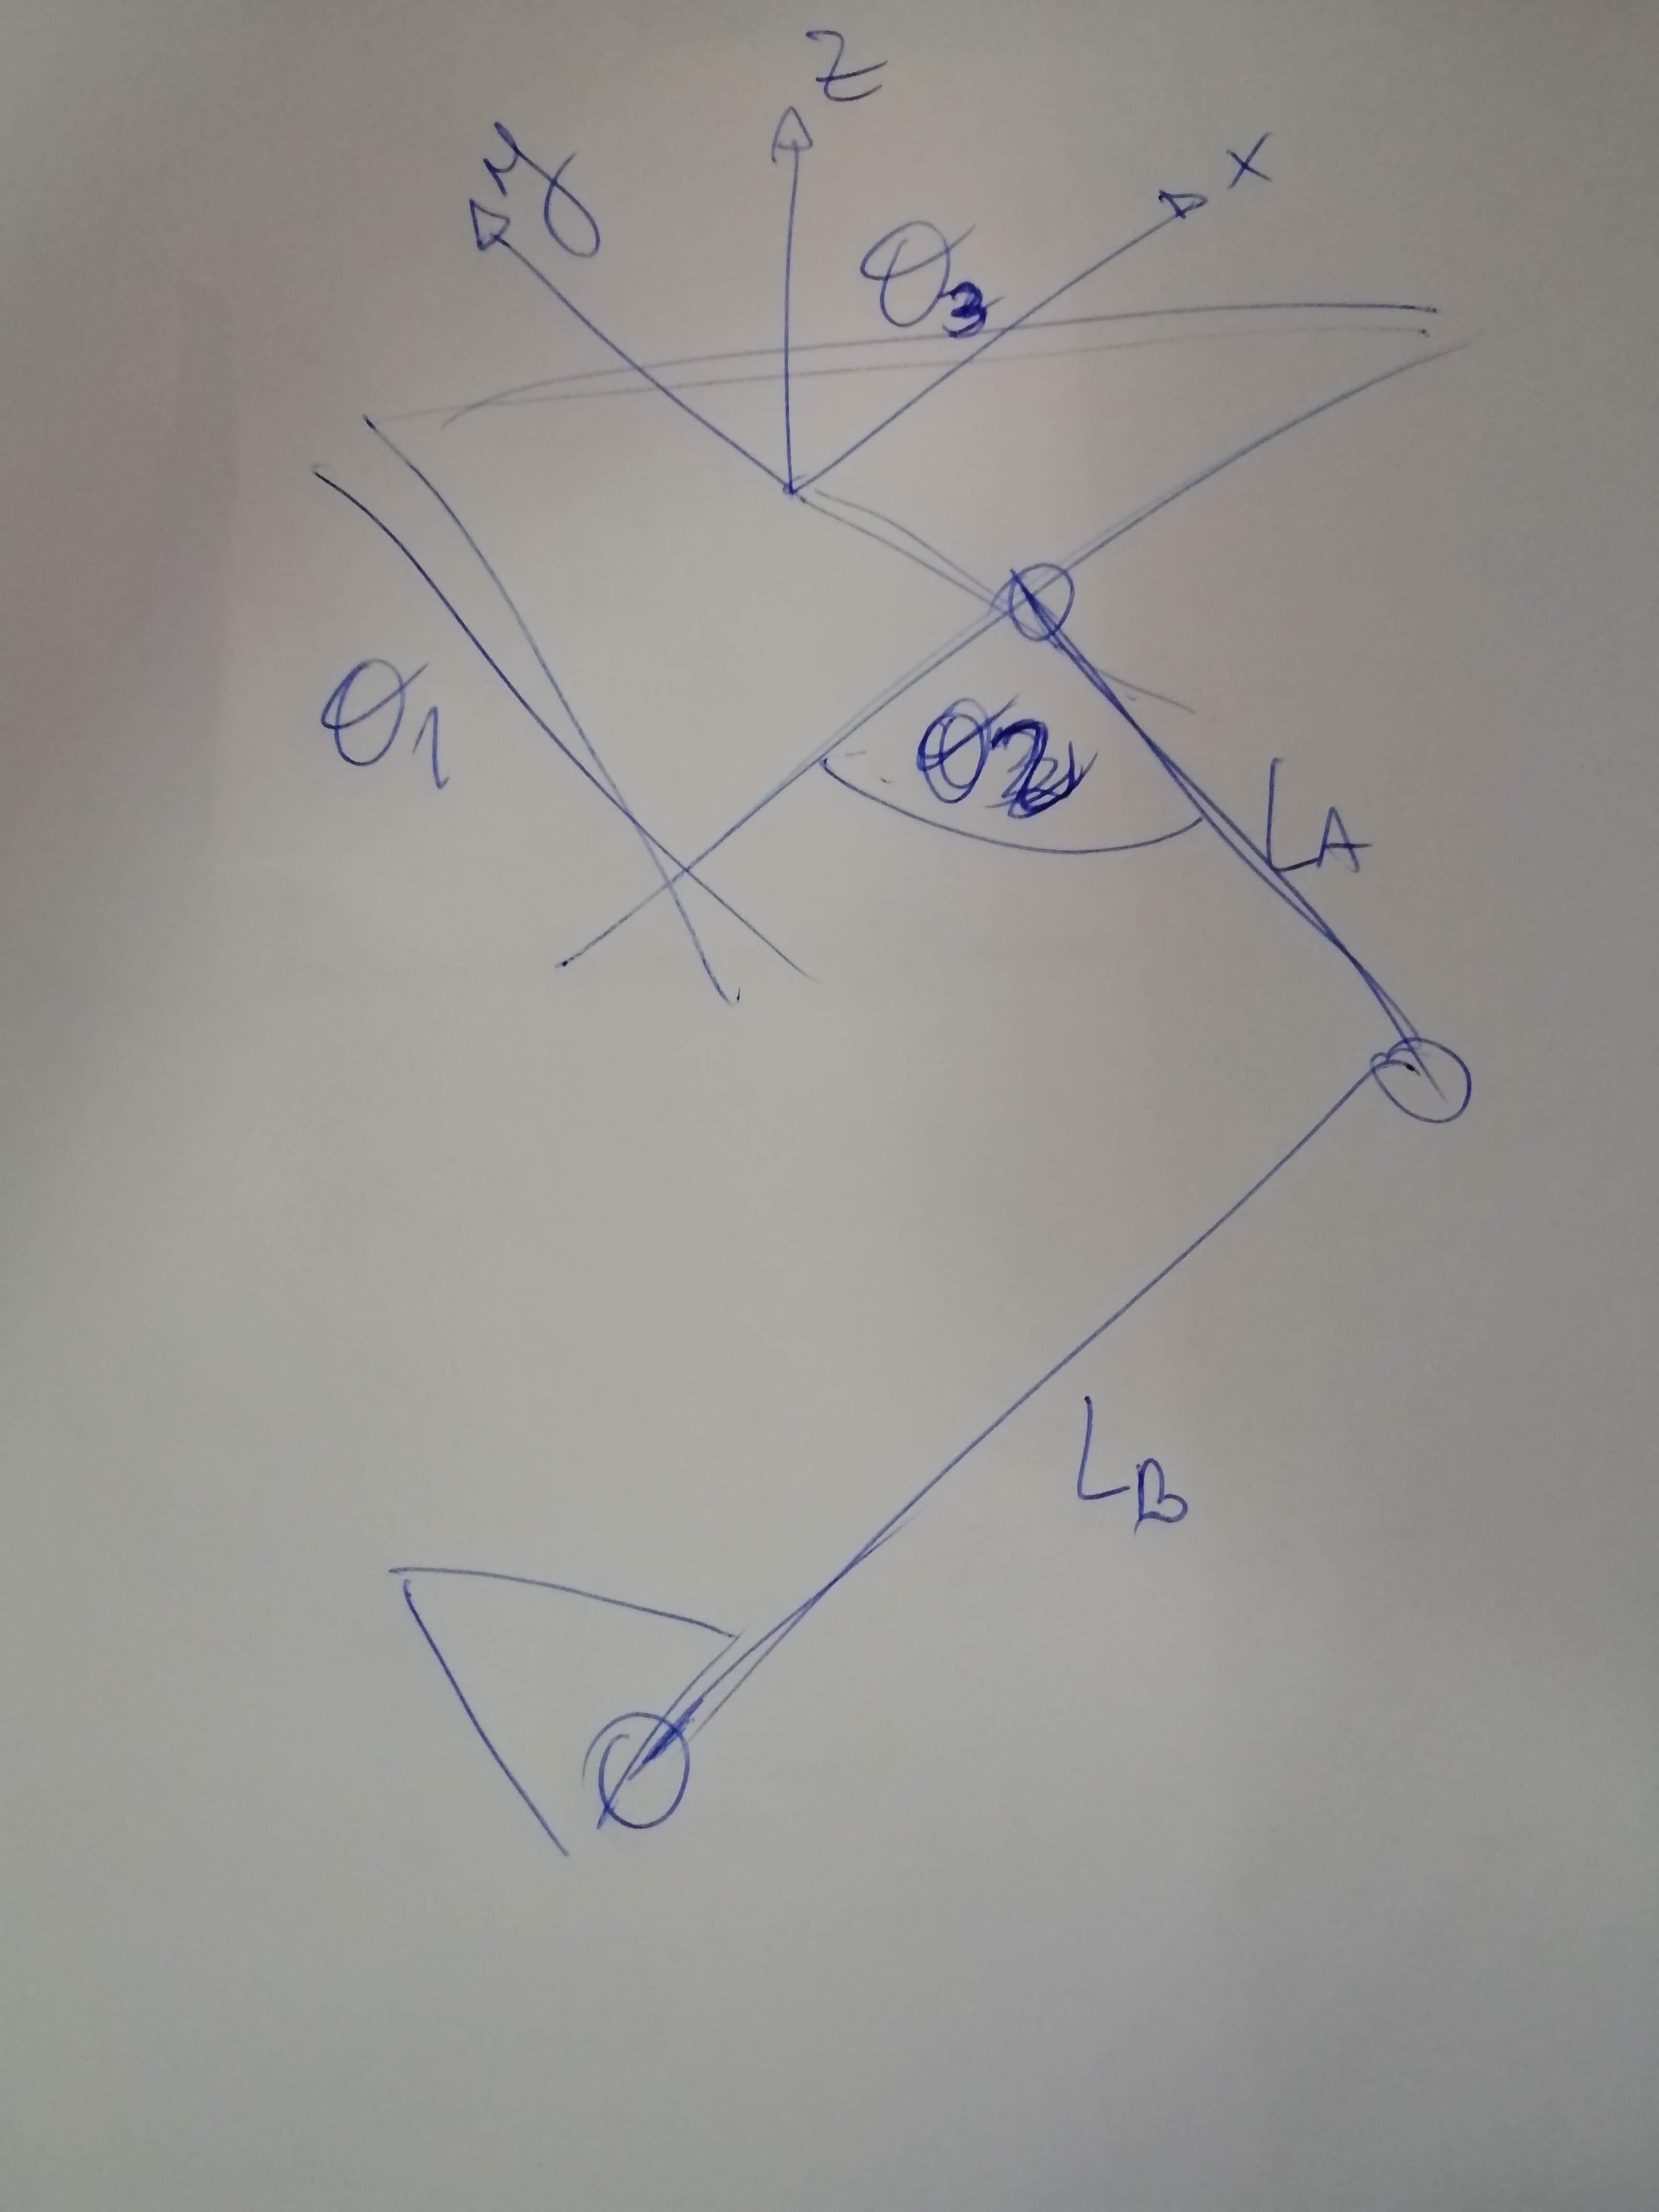 z
y
x
θ3
θ1
θ2
LA
LB